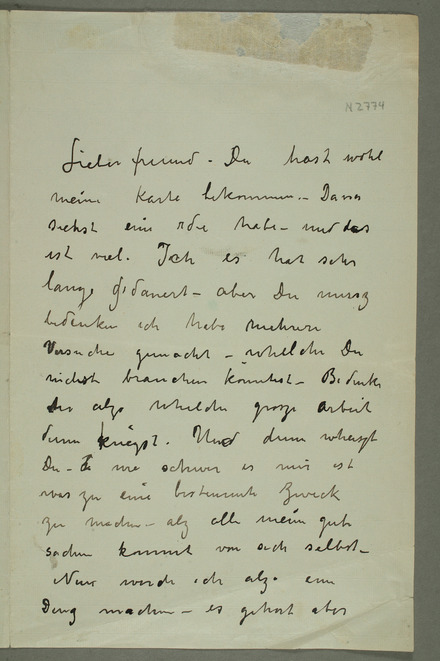 N 2774
Lieber freund - Du hast wohl
meine Karte bekommen. - Daraus
siehst eine idee habe - und das
ist viel. Ich es hat sehr
lange gedauert - aber Du musz
bedenken ich habe mehrere
Versuche gemacht - whelche Du
nichst brauchen könntest - Bedenke
also whelche grosze arbeit
Du kriegst. Und dann wheiszt
Du - wie schwer es mir ist
was zu eine bestemmte Zweck
zu machen - alz alle meine gute
sachen kommt von sich selbst -
Nun werde ich alzo eine
Ding machen - es gehört aber